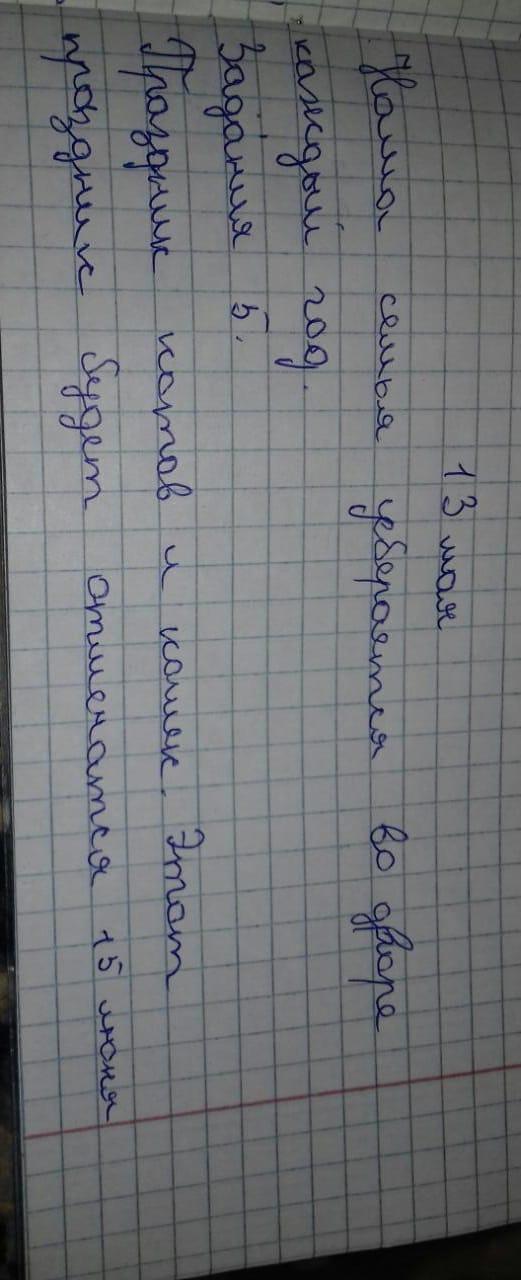 13 мая
Наша семья уберается во дворе
каждый год.
Задания 5.
Праздник котов и кошек. Этот
праздник будет отмечатся 15 июня